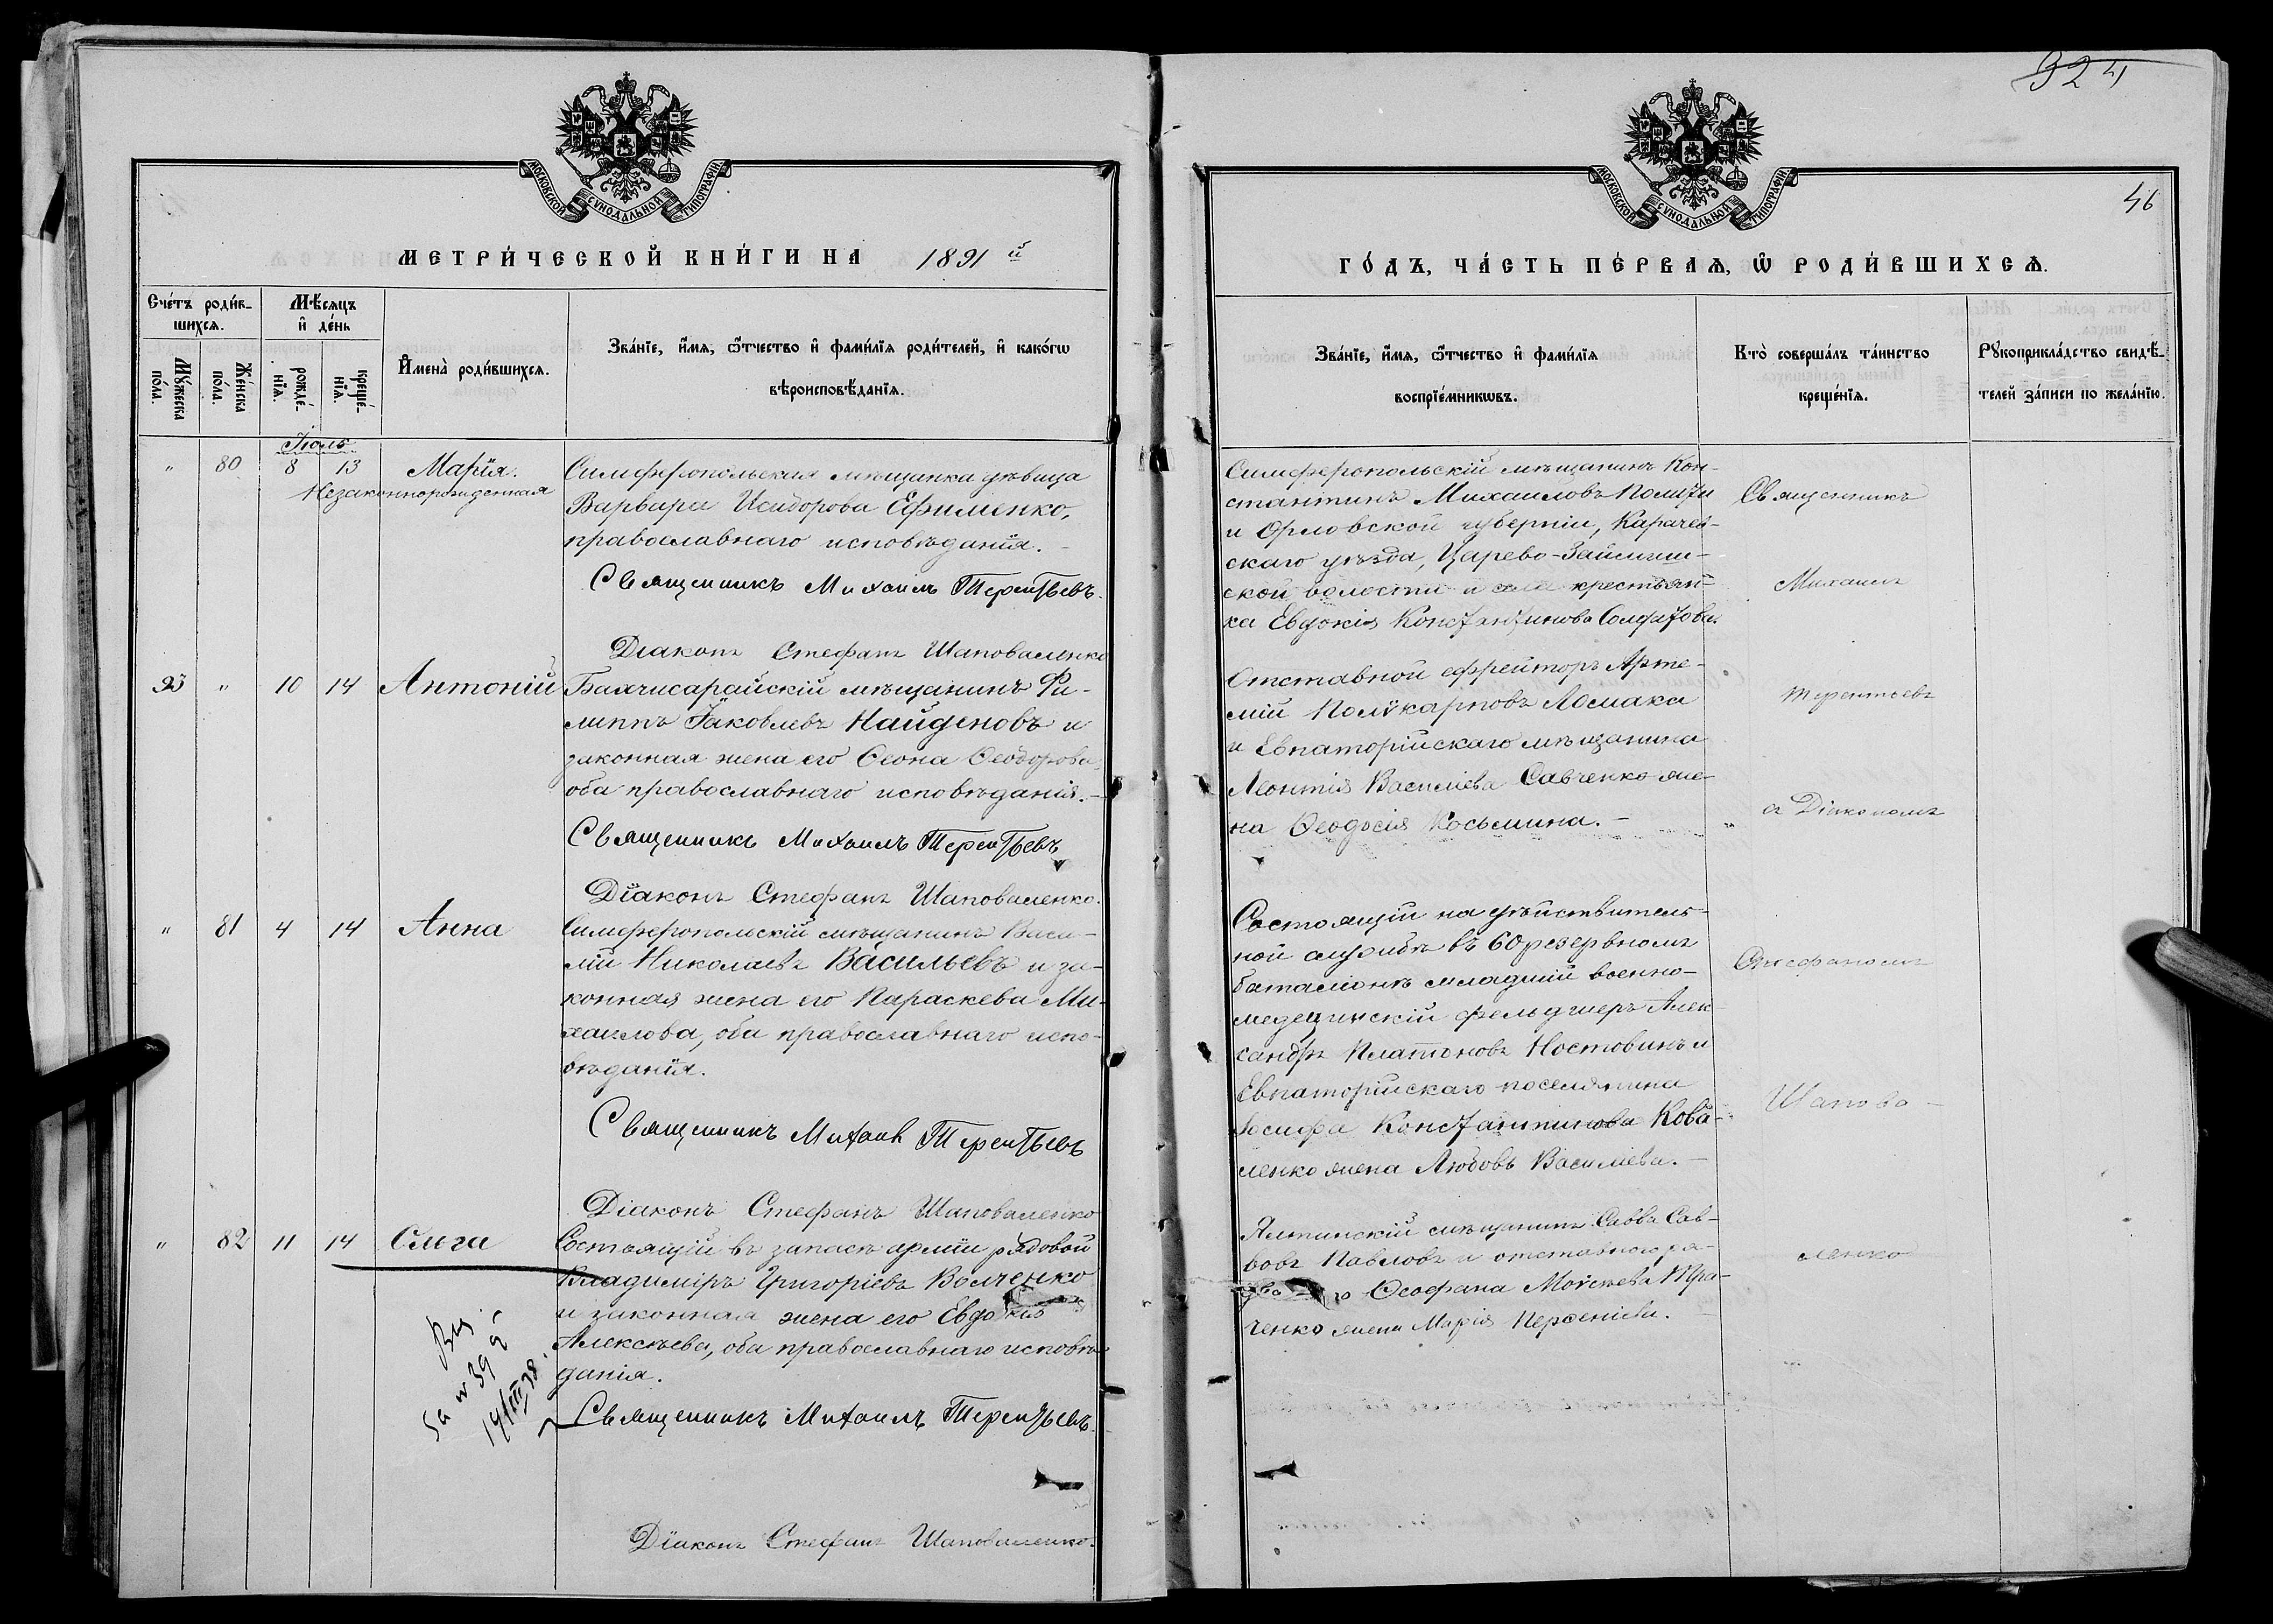 324
46
МОСКОВСКОЙ СѴНОДАЛЬНОЙ ТИПОГРАФІИ
МЕТРИ́ЧЕСКОЙ КНИ́ГИ НА 1891й
Сче́тъ роди́вшихся.
Мꙋ́жеска по́ла.
Же́нска по́ла.
Мѣ́сяцъ и҆ де́нь
рожде́нїѧ.
креще́нїѧ.
И҆мена̀ роди́вшихсѧ.
Зва́нїе, и҆́мѧ, ѻ҆́тчество и҆ фами́лїѧ роди́телей, и҆ како́гѡ
вѣроисповѣ́данїѧ.
Іюль
" 80 8 13 Марія.
Незаконнорожденная
Симферопольская мѣщанка дѣвица
Варвара Исидорова Ефименко,
православнаго исповѣданія.
Священникъ Михаилъ Терентьевъ.
Діаконъ Стефанъ Шаповаленко
93 " 10 14 Антоній
Бахчисарайскій мѣщанинъ Фи-
липпъ Іаковлевъ Найденовъ и
законная жена его Ѳеона Ѳеодорова,
оба православнаго исповѣданія.
Священникъ Михаилъ Терентьевъ
Діаконъ Стефанъ Шаповаленко.
" 81 4 14 Анна
Симферопольскій мѣщанинъ Васи-
лій Николаевъ Васильевъ и за-
конная жена его Параскева Ми-
хаилова, оба православнаго испо-
вѣданія.
Священникъ Михаилъ Терентьевъ
Діаконъ Стефанъ Шаповаленко
" 82 11 14 Ольга
Состоящій въ запасѣ арміи рядовой
Владиміръ Григоріевъ Волченко
и законная жена его Евдокія
Алексѣева, оба православнаго исповѣ-
данія.
Священникъ Михаилъ Терентьевъ.
Діаконъ Стефанъ Шаповаленко.
МОСКОВСКОЙ СѴНОДАЛЬНОЙ ТИПОГРАФІИ
ГО́ДЪ, ЧА́СТЬ ПЕ́РВАѦ, Ѡ҆ РОДИ́ВШИХСѦ.
Зва́нїе, и҆́мѧ, ѻ҆́тчество и҆ фами́лїѧ
воспрїе́мникѡвъ.
Кто̀ соверша́лъ та́инство
креще́нїѧ.
Рꙋкоприкла́дство свидѣ́-
телей за́писи по жела́нїю.
Симферопольскій мѣщанинъ Кон-
стантинъ Михаиловъ
и Орловской губерніи, Карачев-
скаго уѣзда, Царево-Займищ-
ской волости и села крестьян-
ка Евдокія Константинова
Отставной ефрейторъ Арте-
мій Поликарповъ Ломака
и Евпаторійскаго мѣщанина
Леонтія Василіева Савченко же-
на Ѳеодосія Косьмина.
Состоящій на дѣйствитель-
ной службѣ въ 60 резервномъ
баталіонѣ младшій военно-
медецинскій фельдшеръ Алек-
сандръ Платоновъ Ностовинъ и
Евпаторійскаго поселянина
Іосифа Константинова Кова-
ленко жена Любовь Василіева.
Ялтинскій мѣщанинъ Савва Сав-
вовъ Павловъ и отставного ря-
Ѳеофана Моисѣева Тра-
ченко жена Марія
Священникъ
Михаилъ
Терентьевъ
съ Діакономъ
Стефаномъ
Шапова-
ленко